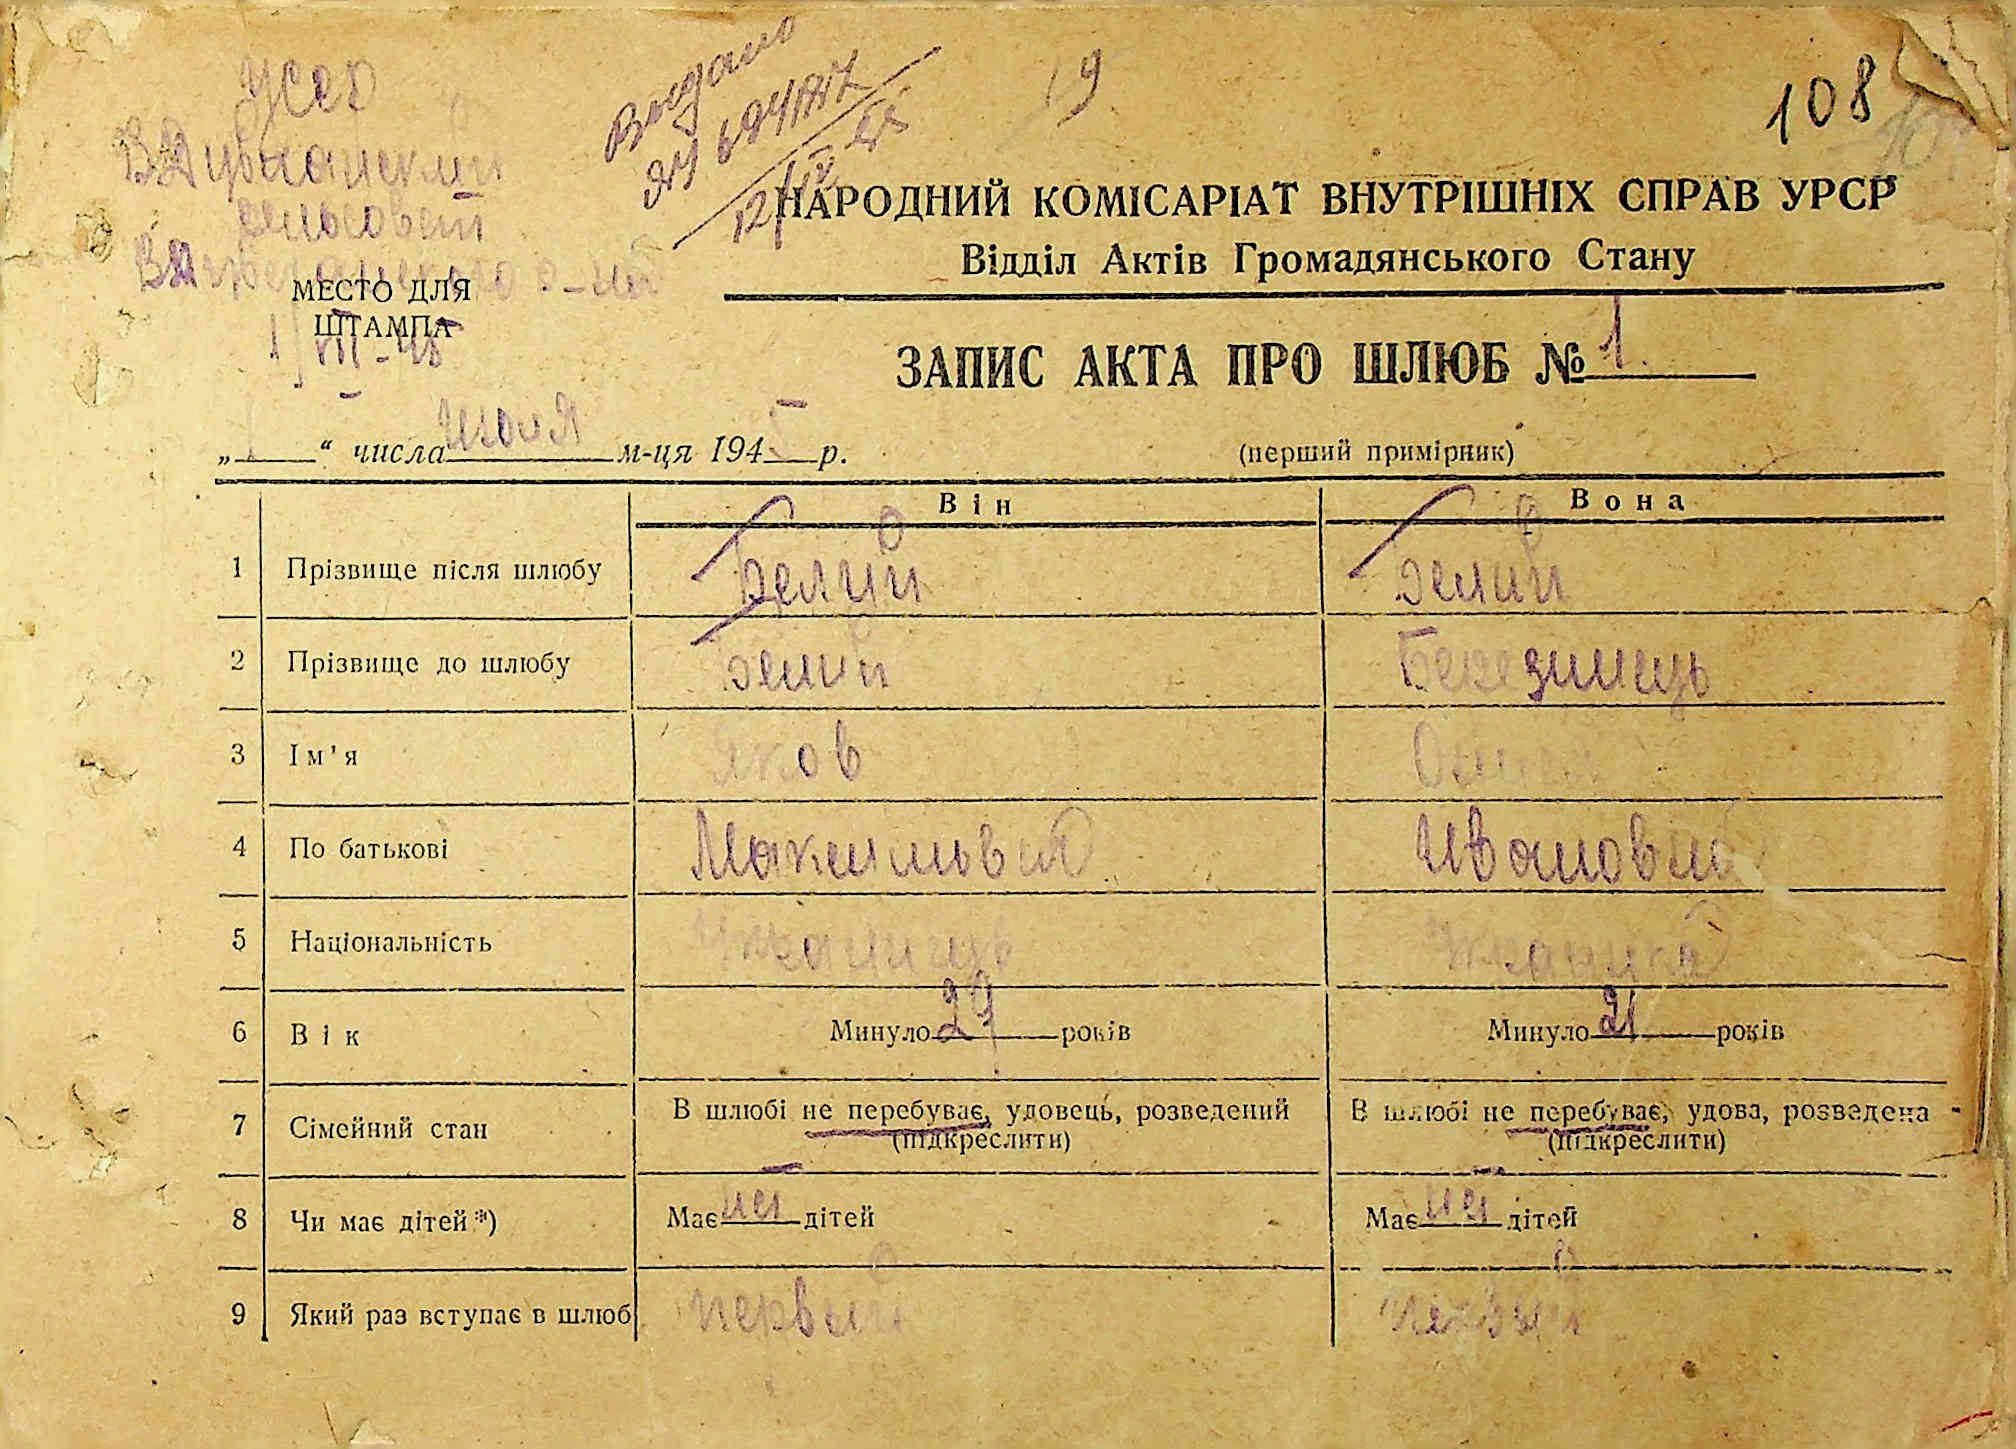 Усер
сельсовет
Видано
19
108
НАРОДНИЙ КОМІСАРІАТ ВНУТРІШНІХ СПРАВ УРСР
Відділ Актів Громадянського Стану
МЕСТО ДЛЯ
ШТАМПА
1/VII-45
ЗАПИС АКТА ПРО ШЛЮБ № 1
„1“ числа июля м-ця 1945 р.
(перший примірник)
Він Вона
1 Прізвище після шлюбу Белий Белий
2 Прізвище до шлюбу Белий Березинець
3 Ім'я Яков
4 По батькові
5 Національність
6 Вік Минуло 29 років Минуло 21 років
7 Сімейний стан В шлюбі не перебуває, удовець, розведений В шлюбі не перебуває, удова, розведена
(підкреслити) (підкреслити)
8 Чи має дітей*) Має нет дітей Має нет дітей
9 Який раз вступає в шлюб первый первый